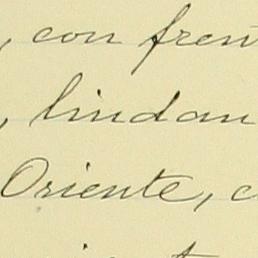 , con fren
, lindan
Oriente, c